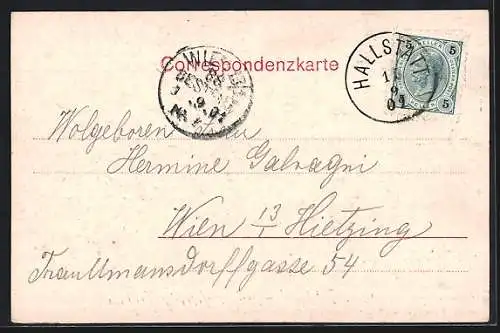 Correspondenzkarte
WIEN
HALLSTATT
5 5
5 5
Wolgeboren
Hermine Galvagni
Wien 13/1 Hietzing
Trauttmansdorffgasse 54